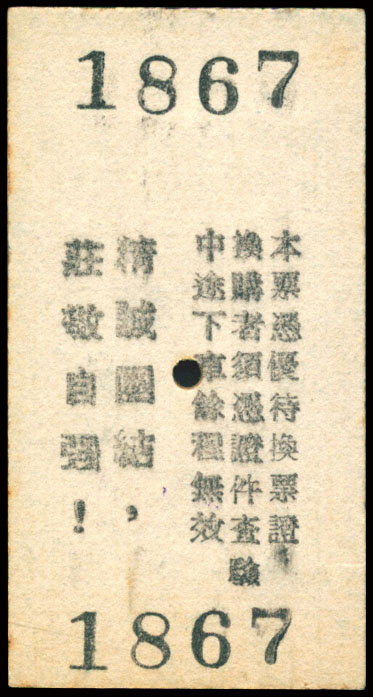 1867
本票憑優待換票證
換購者須憑證件查驗
中途下車餘程無效
精誠團結，
莊敬自强！
1867